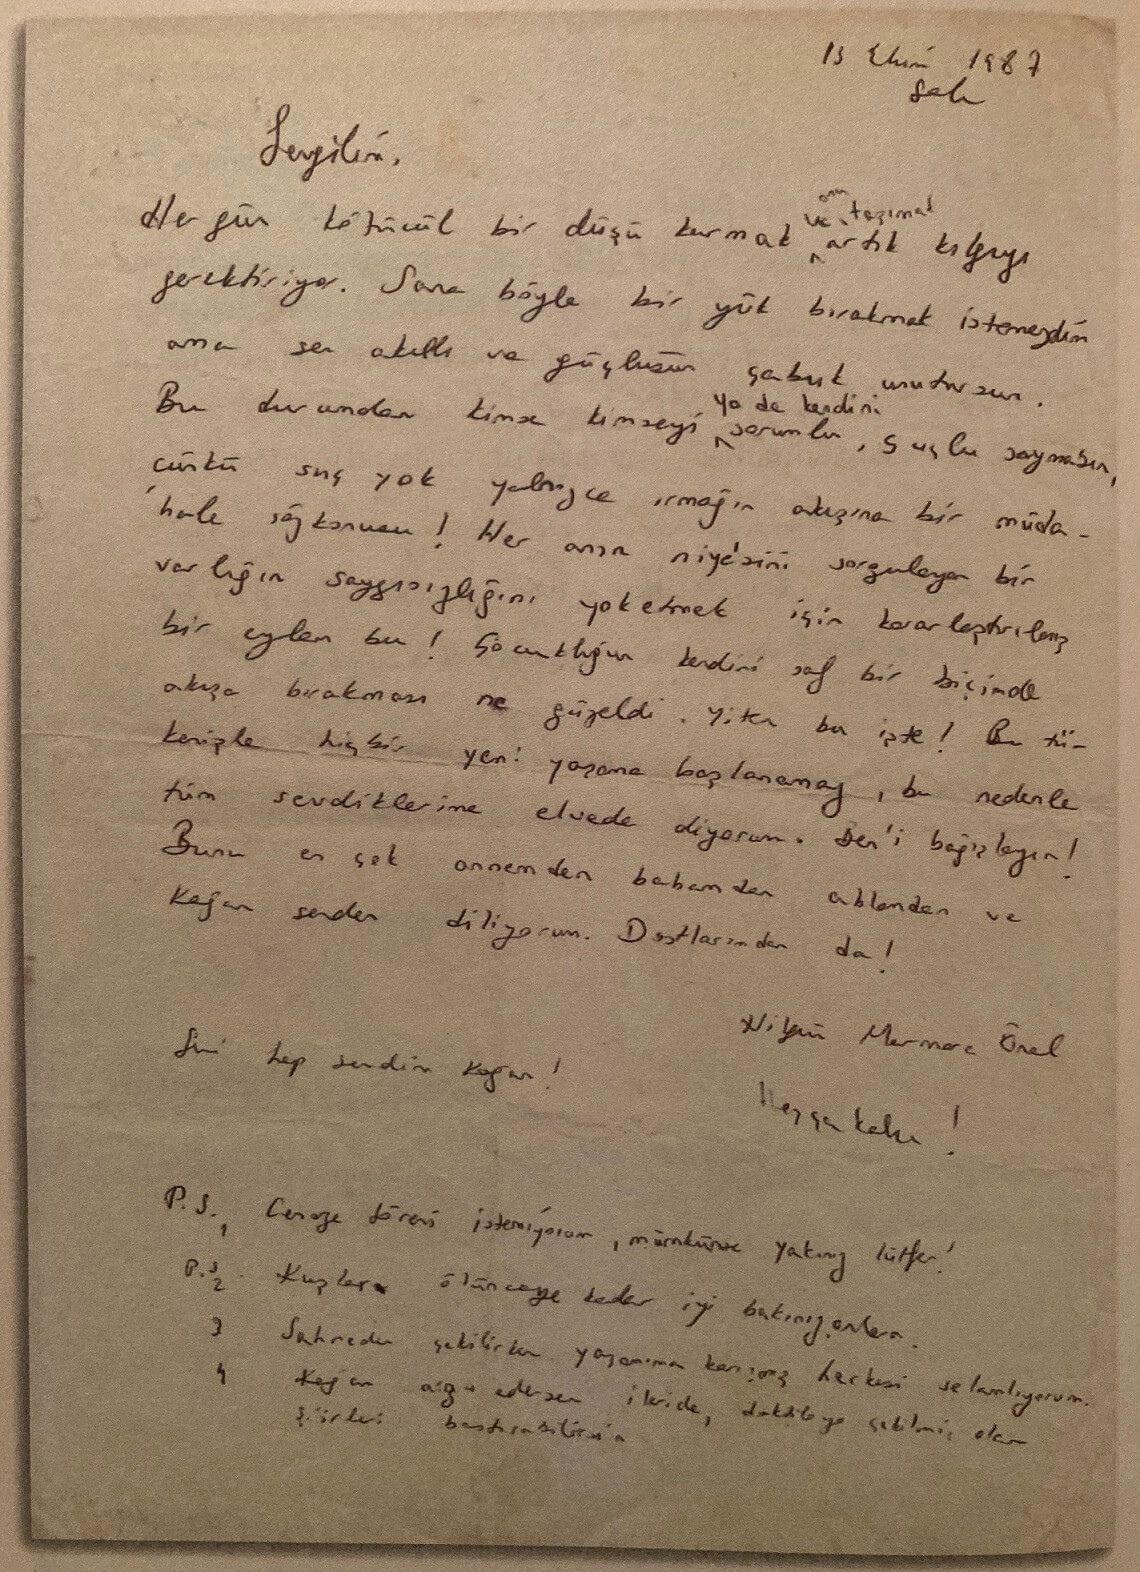 13 Ekim 1987
Salı
Sevgilim,
onu
ve taşımak
Her gün kötücül bir düşü kurmak artık kılgıyı
gerektiriyor. Sana böyle bir yük bırakmak istemezdim
ama sen akıllı ve güçlüsün çabuk unutursun.
ya da kendini
Bu durumdan kimse kimseyi sorumlu, suçlu saymasın,
çünkü suç yok yalnızca ırmağın akışına bir müda-
hale sözkonusu! Her anın niye'sini sorgulayan bir
varlığın saygısızlığını yoketmek için kararlaştırılmış
bir eylem bu! Çocukluğun kendini saf bir biçimde
akışa bırakması ne güzeldi. Yiten bu işte! Bu tü-
kenişle hiçbir yeni yaşama başlanamaz, bu nedenle
tüm sevdiklerime elveda diyorum. Ben'i bağışlayın!
Bunu en çok annemden babamdan ablamdan ve
Kağan senden diliyorum. Dostlarımdan da!
Nilgün Marmara Önal
Seni hep sevdim Kağan!
Hoşçakalın!
P.S.1 Cenaze töreni istemiyorum, mümkünse yakınız lütfen!
P.S.2 Kuşlara ölünceye kadar iyi bakınız onlara.
3 Sahneden çekilirken yaşamıma karışmış herkesi selamlıyorum.
4 Kağan arzu edersen ileride, daktiloya çekilmiş olan
şiirleri bastırabilirsin